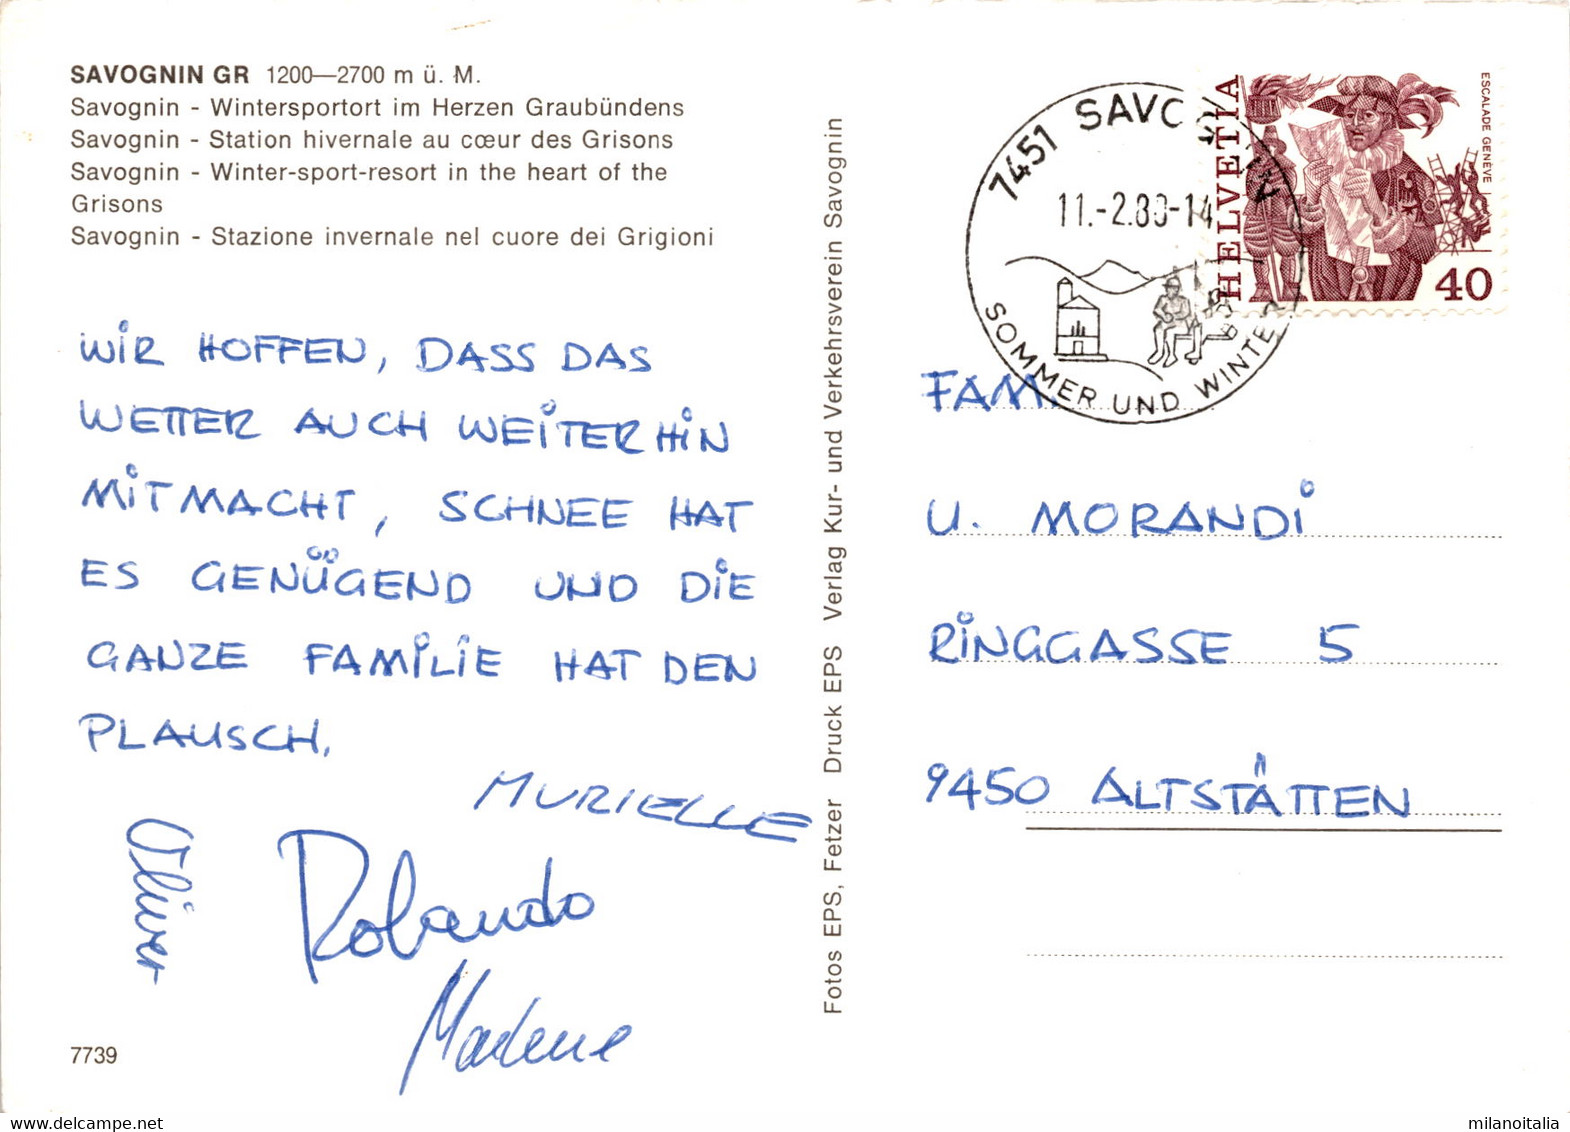 SAVOGNIN GR 1200—2700 m ü. M.
Savognin - Wintersportort im Herzen Graubündens
Savognin - Station hivernale au cœur des Grisons
Savognin - Winter-sport-resort in the heart of the
Grisons
Savognin - Stazione invernale nel cuore dei Grigioni
WIR HOFFEN, DASS DAS
WETTER AUCH WEITERHIN
MITMACHT, SCHNEE HAT
ES GENÜGEND UND DIE
GANZE FAMILIE HAT DEN
PLAUSCH.
MURIELLE
Oliver
Rolando
Marlene
7739
Fotos EPS, Fetzer Druck EPS Verlag Kur- und Verkehrsverein Savognin
7451 SAVOGNIN
11.-2.80-14
SOMMER UND WINTER
HELVETIA
ESCALADE GENÈVE
40
FAM.
U. MORANDI
RINGGASSE 5
9450 ALTSTÄTTEN
milanoitalia